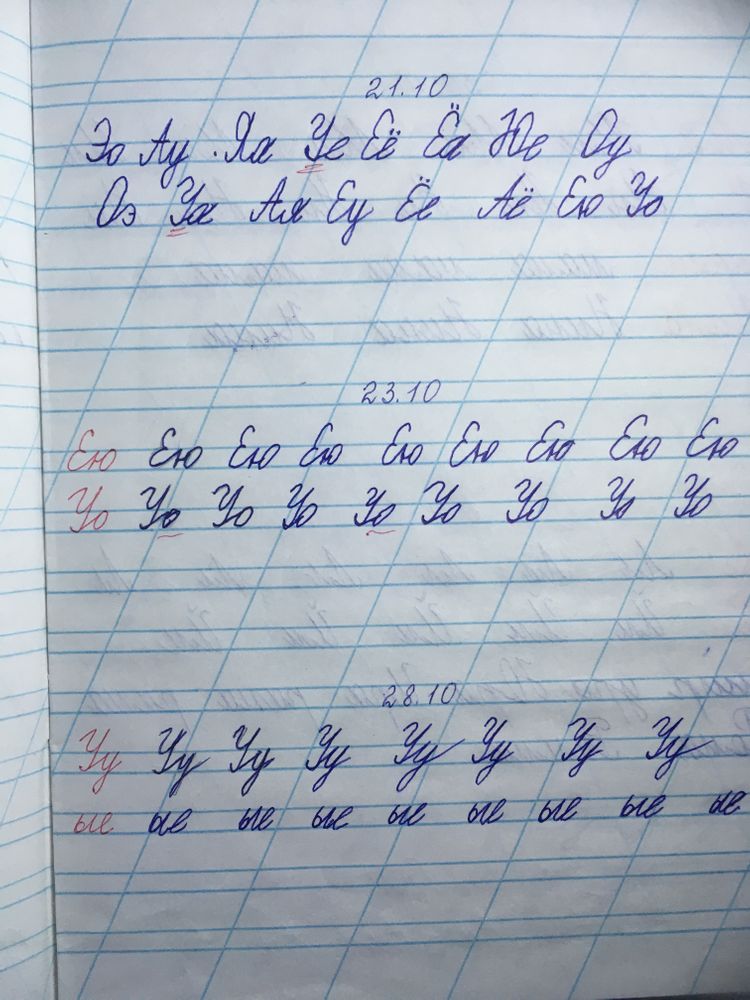 21.10
Эо Ау Яя Уе Её Ёа Юе Оу
Оэ Уа Ая Еу Ёе Аё Ею Уо
23.10
Ею Ею Ею Ею Ею Ею Ею Ею Ею
Уо Уо Уо Уо Уо Уо Уо Уо Уо
28.10
Уу Уу Уу Уу Уу Уу Уу Уу
ые ые ые ые ые ые ые ые ые